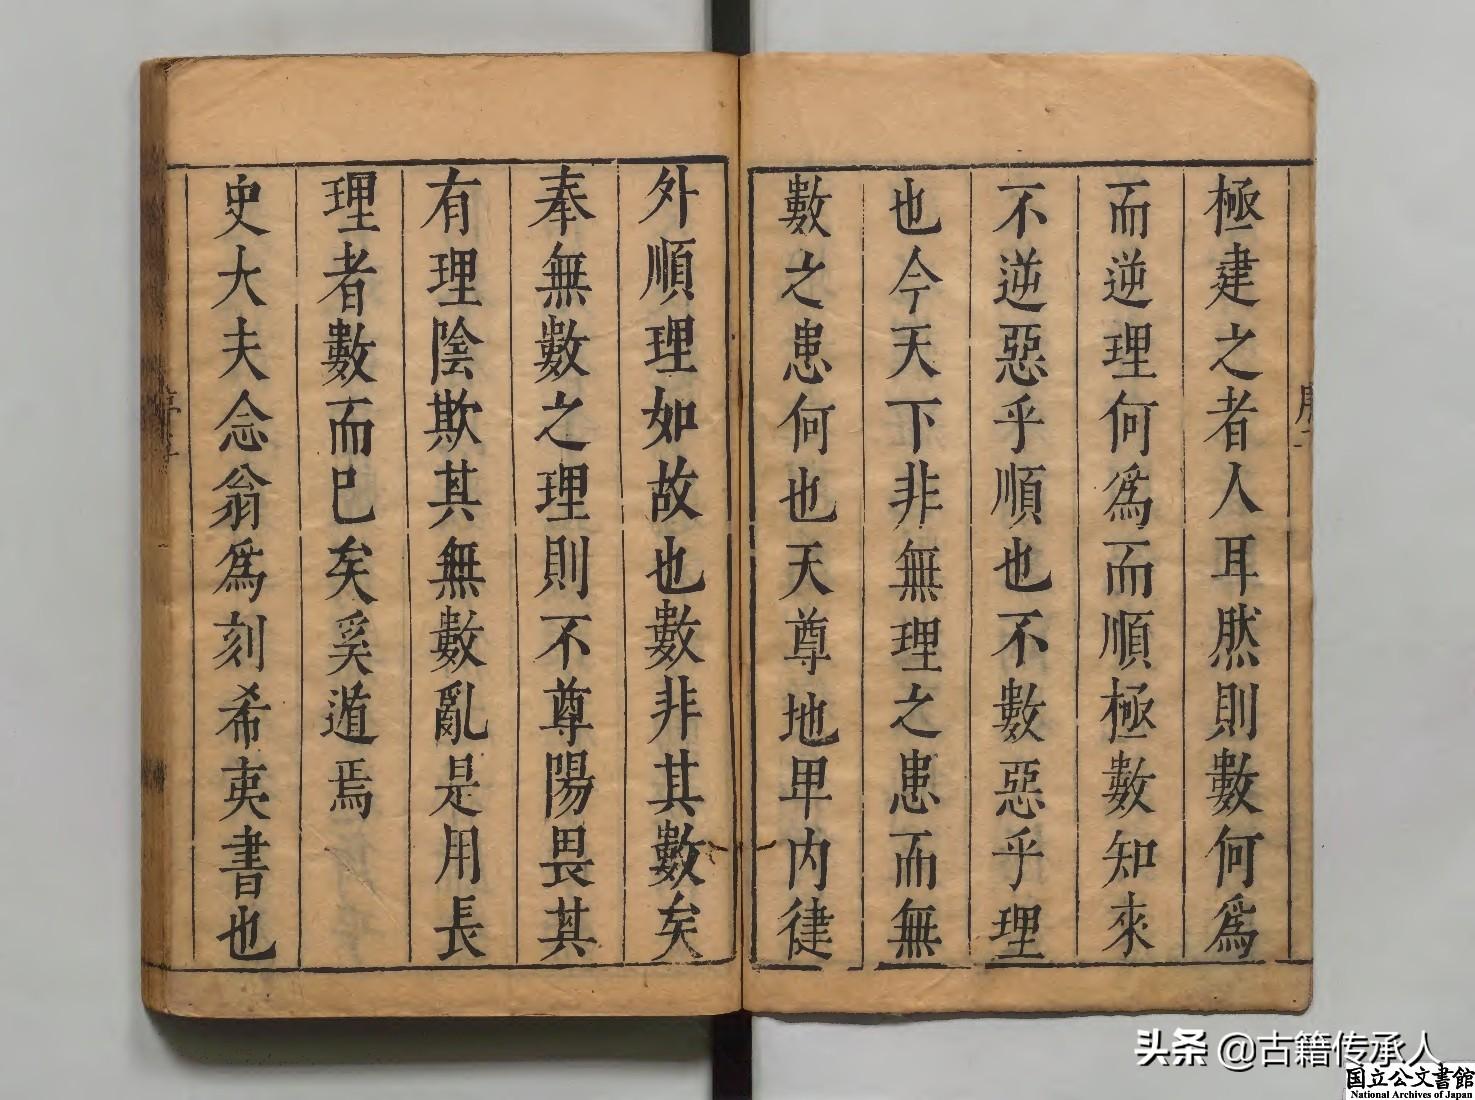 極建之者人耳然則數何爲
而逆理何爲而順極數知來
不逆惡乎順也不數惡乎理
也今天下非無理之患而無
數之患何也天尊地卑内健
外順理如故也數非其數矣
奉無數之理則不尊陽畏其
有理陰欺其無數亂是用長
理者數而巳矣奚遁焉
史大夫念翁爲刻希夷書也
头条 @古籍传承人
国立公文書館
National Archives of Japan